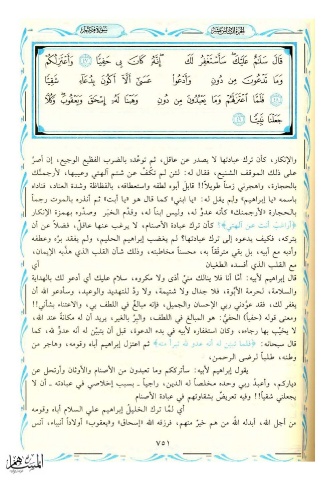 سورة مريم
قَالَ سَلَٰمٌ عَلَيْكَ سَأَسْتَغْفِرُ لَكَ رَبِّىٓ إِنَّهُۥ كَانَ بِى حَفِيًّا ﴿٤٧﴾ وَأَعْتَزِلُكُمْ
وَمَا تَدْعُونَ مِن دُونِ ٱللَّهِ وَأَدْعُوا۟ رَبِّى عَسَىٰٓ أَلَّآ أَكُونَ بِدُعَآءِ رَبِّى شَقِيًّا
﴿٤٨﴾ فَلَمَّا ٱعْتَزَلَهُمْ وَمَا يَعْبُدُونَ مِن دُونِ ٱللَّهِ وَهَبْنَا لَهُۥٓ إِسْحَٰقَ وَيَعْقُوبَ وَكُلًّا
جَعَلْنَا نَبِيًّا ﴿٤٩﴾
والإنكار، كأن ترك عبادتها لا يصدر عن عاقل، ثم توعّده بالضرب الفظيع الوجيع، إن أصرَّ
على ذلك الموقف الشنيع، فقال له: لئن لم تكفَّ عن شتم آلهتي وعيبها، لأرجمنَّك
بالحجارة، واهجرني زمناً طويلاً!! قابل أبوه لطفه واستعطافه، بالفظاظة وشدة العناد، فناداه
باسمه «يا إبراهيم» ولم يقل له: «يا ابني» كما قال هو «يا أبت» ثم أنذره بالموت رجماً
بالحجارة «لأرجمنك» كأنه عدوٌّ له، وليس ابناً له، وقدَّم الخبر وصدَّره بهمزة الإنكار
﴿أراغب أنت عن آلهتي﴾؟ كأنَّ ترك عبادة الأصنام، لا يرغب عنها عاقل، فضلاً عن أن
يتركه، فكيف يدعوه إلى ترك عبادتها؟ لم يغضب إبراهيم الحليم، ولم يفقد برَّه وعطفه
وأدبه مع أبيه، بل بقي مترفقاً به، محسناً مخاطبته، وذلك شأن القلب الذي هذَّبه الإيمان،
مع القلب الذي أفسده الطغيان
قال إبراهيم لأبيه: أمَّا أنا فلا ينالك منّي أذى ولا مكروه، سلام عليك أي أدعو لك بالهداية
والسلامة، لحرمة الأبوّة، فلا جدال ولا شتيمة، ولا ردَّ للتهديد والوعيد، وسأدعو الله أن
يغفر لك، فقد عوَّدني ربي الإحسان والجميل، فإنه مبالغٌ في اللطف بي، والاعتناء بشأني!!
ومعنى قوله (حفياً) الحفيُّ: هو المبالغ في اللطف، والبرّ بالغير، يريد أن له مكانة عند الله،
لا يخيِّب بها رجاءه، وكان استغفاره لأبيه في بدء الدعوة، قبل أن يتبيَّن له أنه عدوٌّ لله، كما
قال سبحانه: ﴿فلما تبيَّن له أنه عدو لله تبرأ منه﴾ ثم اعتزل إبراهيم أباه وقومه، وهاجر من
وطنه، طلباً لرضى الرحمن،
يقول إبراهيم لأبيه: سأترككم وما تعبدون من الأصنام والأوثان وأرتحل عن
دياركم، وأعبدُ ربي وحده مخلصاً له الدين، راجياً ـ بسبب إخلاصي في عبادته ـ أن لا
يجعلني شقياً!! وفيه تعريضٌ بشقاوتهم في عبادة الأصنام
أي لمَّا ترك الخليل إبراهيم علي السلام أباه وقومه
من أجل الله، أبدله الله من هم خيرٌ منهم، فرزقه الله «إسحاق» و«يعقوب» أولاداً أنبياء، آنس
٧٥١